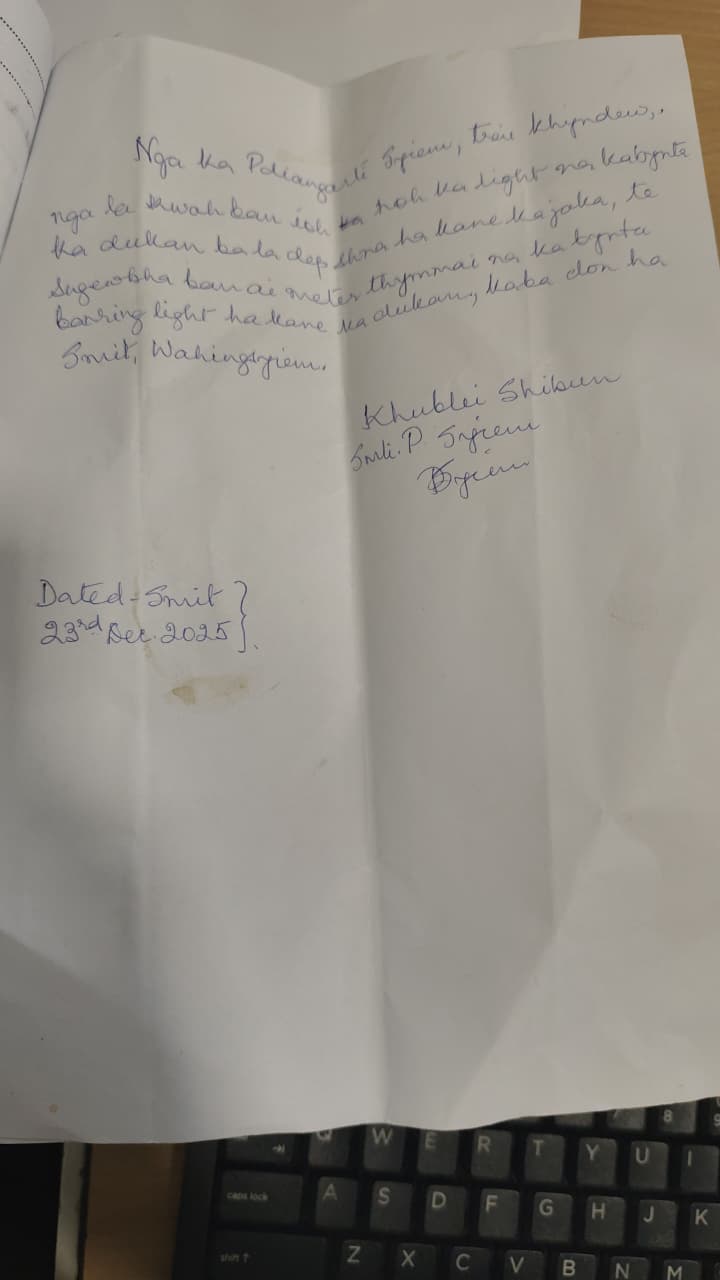 Nga ka Pdiangarti Syiem, trai khyndew,
nga la kwah ban ioh noh ka light na kabynta
ka dukan ba la dep shna ha kane ka jaka, te
Sngewbha ban ai meter thymmai na ka bynta
banring light ha kane ka dukan, kaba don ha
Smit, Wahingsyiem.
Khublei Shibun
Smti. P. Syiem
Syiem
Dated - Smit }
23rd Dec. 2025 }.
caps lock
shift
8
9
W E R T Y U I
A S D F G H J K
Z X C V B N M